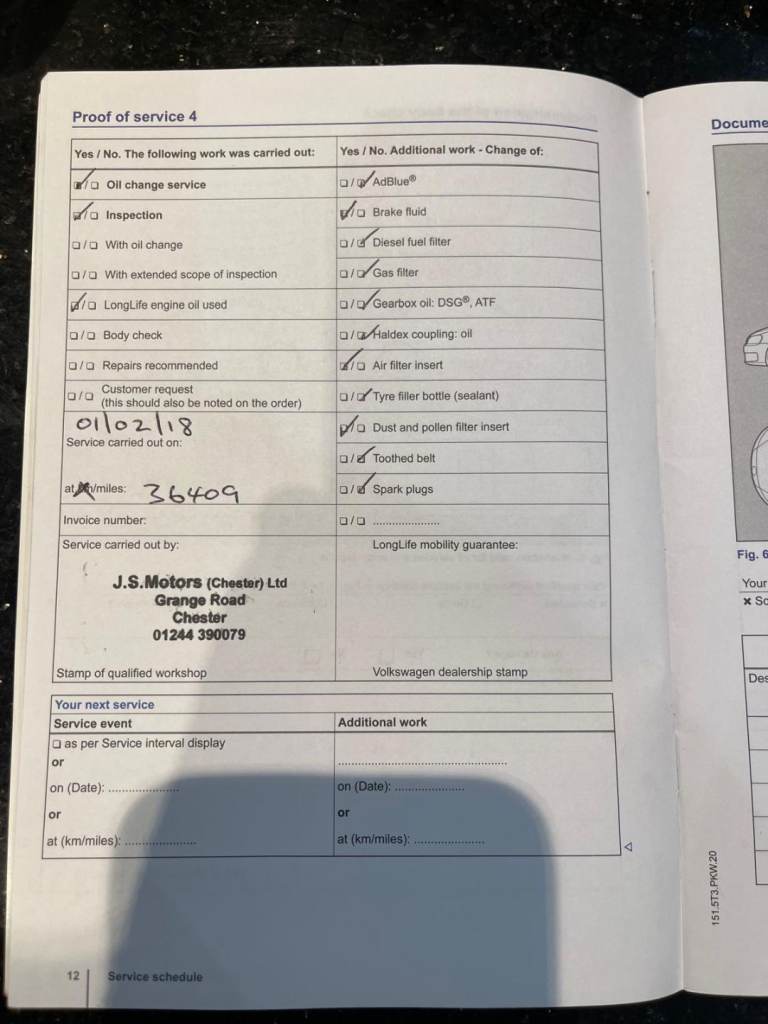 Proof of service 4
Yes / No. The following work was carried out:
☑/☐ Oil change service
☑/☐ Inspection
☐/☐ With oil change
☐/☐ With extended scope of inspection
☑/☐ LongLife engine oil used
☐/☐ Body check
☐/☐ Repairs recommended
☐/☐ Customer request
(this should also be noted on the order)
01/02/18
Service carried out on:
at km/miles: 36409
Invoice number:
Service carried out by:
J.S.Motors (Chester) Ltd
Grange Road
Chester
01244 390079
Stamp of qualified workshop
Yes / No. Additional work - Change of:
☐/☑ AdBlue®
☑/☐ Brake fluid
☐/☑ Diesel fuel filter
☐/☑ Gas filter
☐/☑ Gearbox oil: DSG®, ATF
☐/☑ Haldex coupling: oil
☑/☐ Air filter insert
☐/☑ Tyre filler bottle (sealant)
☑/☐ Dust and pollen filter insert
☐/☑ Toothed belt
☐/☑ Spark plugs
☐/☐ .....................
LongLife mobility guarantee:
Volkswagen dealership stamp
Your next service
Service event
☐ as per Service interval display
or
on (Date): ......................
or
at (km/miles): ......................
Additional work
.....................................................
on (Date): ......................
or
at (km/miles): ......................
12 Service schedule
Docume
Fig. 6
Your
× Sc
Des
151.5T3.PKW.20